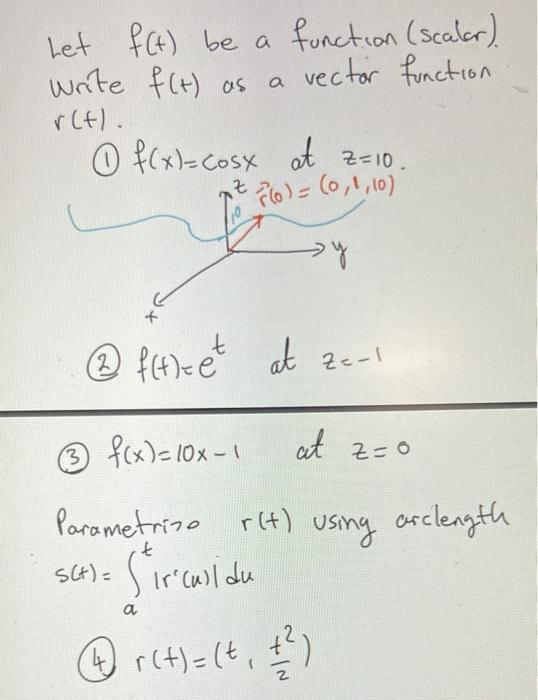 Let f(t) be a function (scalar).
Write f(t) as a vector function
r(t).
① f(x)=cosx at z=10.
z r⃗(0) = (0,1,10)
10
y
x
② f(t)=e^t at z=-1
③ f(x)=10x-1 at z=0
Parametrize r(t) using arclength
s(t) = ∫_a^t |r'(u)| du
④ r(t)=(t, t²/2)